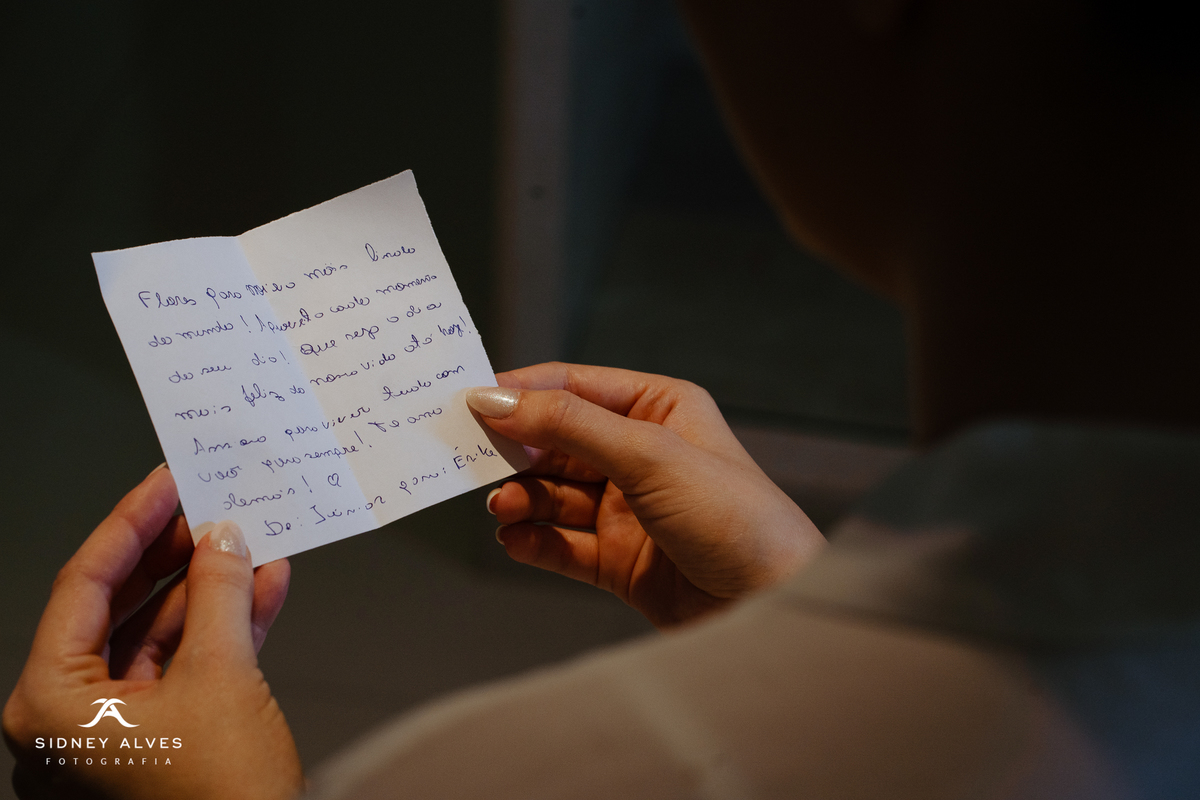 Flores para Noiva mais linda
do mundo! Aproveite cada momento
do seu dia! Que seja o dia
mais feliz da nossa vida até hoje!
Ansioso para viver tudo com
você para sempre! Te amo
demais! ♡
De: Júnior para: Érika
SIDNEY ALVES
FOTOGRAFIA